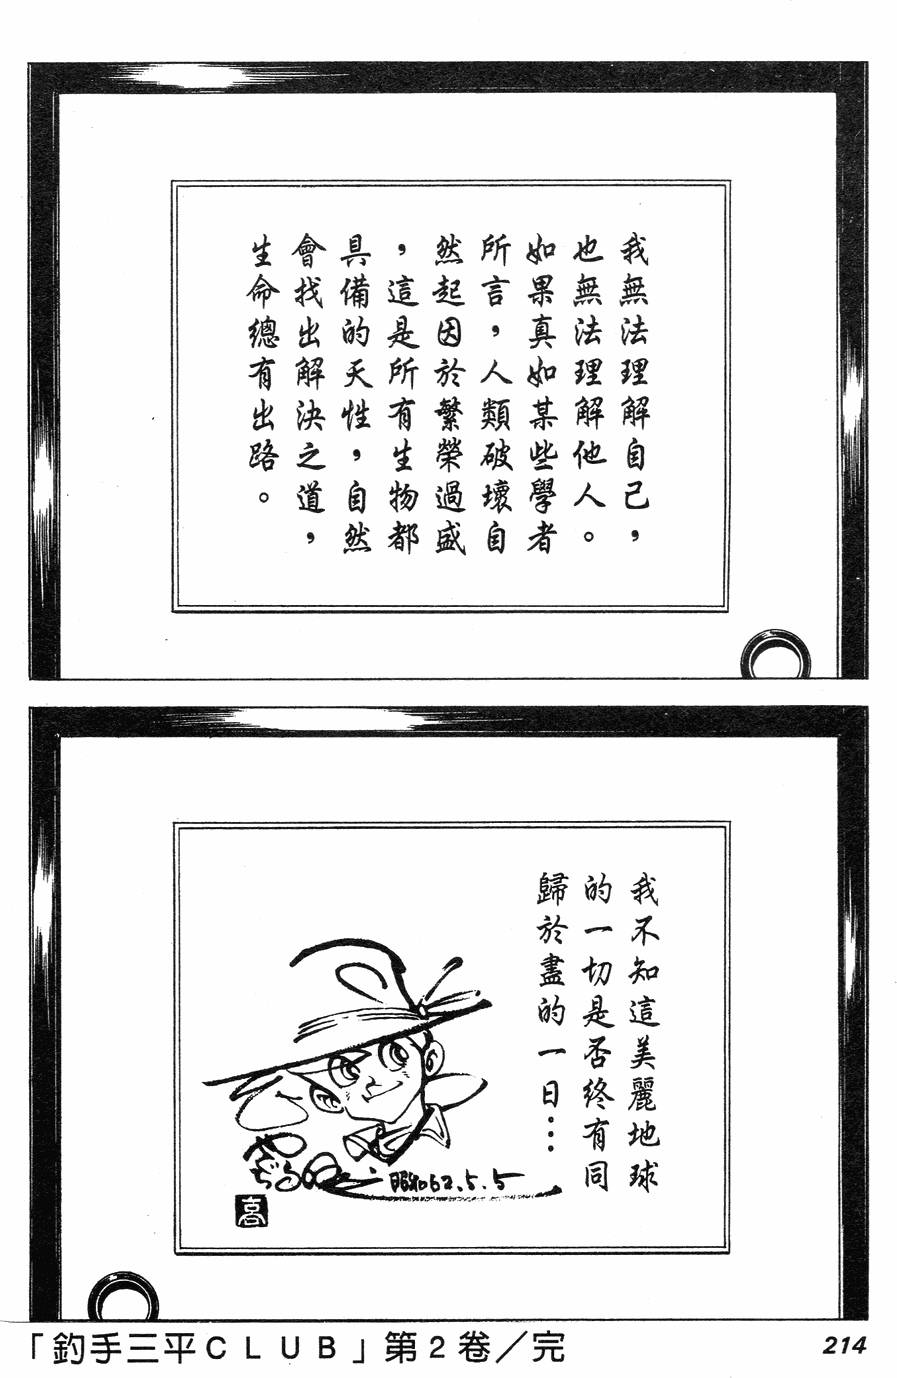 我無法理解自己，
也無法理解他人。
如果真如某些學者
所言，人類破壞自
然起因於繁榮過盛
，這是所有生物都
具備的天性，自然
會找出解決之道，
生命總有出路。
我不知這美麗地球
的一切是否終有同
歸於盡的一日…
昭和62.5.5
「釣手三平CLUB」第2卷／完
214